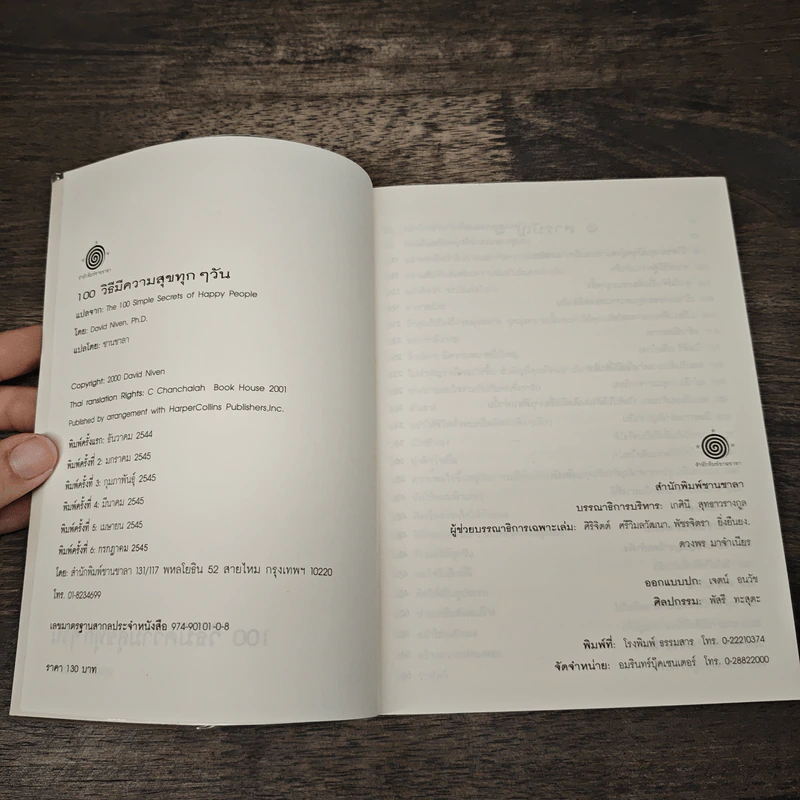 สำนักพิมพ์ชานชาลา
100 วิธีมีความสุขทุก ๆ วัน
แปลจาก: The 100 Simple Secrets of Happy People
โดย: David Niven, Ph.D.
แปลโดย: ชานชาลา
Copyright: 2000 David Niven
Thai translation Rights: C Chanchalah Book House 2001
Published by arrangement with HarperCollins Publishers,Inc.
พิมพ์ครั้งแรก: ธันวาคม 2544
พิมพ์ครั้งที่ 2: มกราคม 2545
พิมพ์ครั้งที่ 3: กุมภาพันธุ์ 2545
พิมพ์ครั้งที่ 4: มีนาคม 2545
พิมพ์ครั้งที่ 5: เมษายน 2545
พิมพ์ครั้งที่ 6: กรกฎาคม 2545
โดย: สำนักพิมพ์ชานชาลา 131/117 พหลโยธิน 52 สายไหม กรุงเทพฯ 10220
โทร. 01-8234699
เลขมาตรฐานสากลประจำหนังสือ 974-90101-0-8
ราคา 130 บาท
สำนักพิมพ์ชานชาลา
สำนักพิมพ์ชานชาลา
บรรณาธิการบริหาร: เกศินี สุทธาวรางกูล
ผู้ช่วยบรรณาธิการเฉพาะเล่ม: ศิริจิตต์ ศรีวิมลวัฒนา, พัชรจิตรา ยิ่งยืนยง,
ดวงพร มาจำเนียร
ออกแบบปก: เจตน์ อนวัช
ศิลปกรรม: พัสรี ทะสุดะ
พิมพ์ที่: โรงพิมพ์ ธรรมสาร โทร. 0-22210374
จัดจำหน่าย: อมรินทร์บุ๊คเซนเตอร์ โทร. 0-28822000